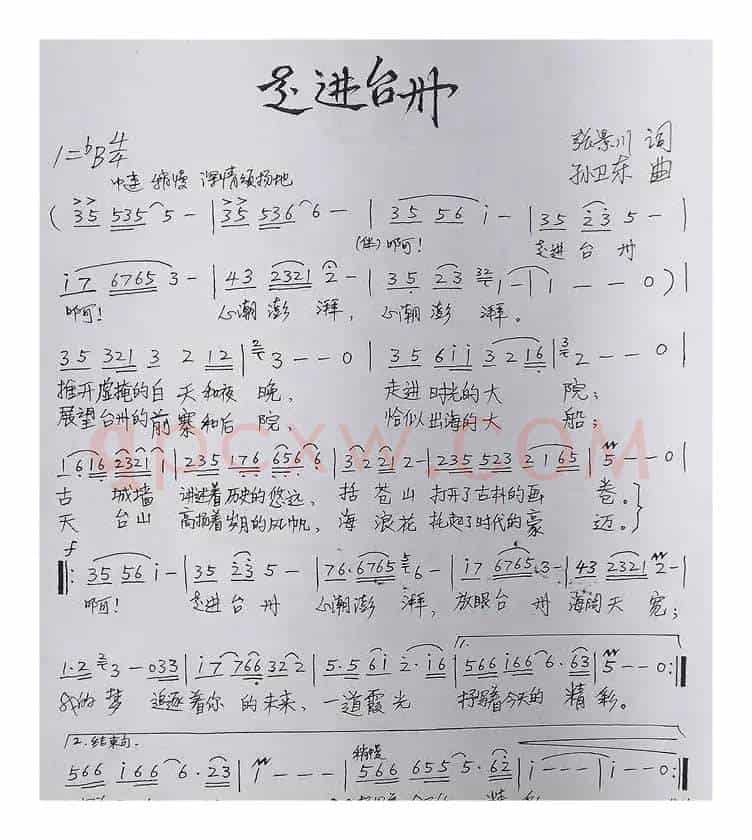 走进台州
1=♭B 4/4
张景川 词
孙卫东 曲
中速 稍慢 深情颂扬地
( 35 535 5 - | 35 536 6 - | 35 56 i - | 35 23 5 - |
(伴)啊! 走进台州
i7 6765 3 - | 43 2321 2 - | 35 23 i - | i - - 0 ) |
啊! 心潮澎湃, 心潮澎湃。
35 321 3 2 12 | 3 - - 0 | 35 6ii 3 2 16 | 2 - - 0 |
推开虚掩的白天和夜晚, 走进时光的大院;
展望台州的前寨和后院, 恰似出海的大船;
1616 2321 1 | 235 176 656 6 | 3 2 2 1 2 - | 235 523 2 165 | 5 - - 0
古城墙 讲述着历史的悠远, 括苍山 打开了古朴的画卷。
天台山 高扬着岁月的风帆, 海浪花 托起了时代的豪迈。
f
‖: 35 56 i - | 35 23 5 - | 76·6765 6 - | i7 6765 3 - | 43 2321 2 - |
啊! 走进台州 心潮澎湃, 放眼台州 海阔天宽;
1·2 3 - 033 | i7 766 32 2 | 5·5 6i 2·i6 | 566 i66 6·63 | 5 - - 0 :‖
我的梦 追逐着你的未来, 一道霞光 抒写着今天的精彩。
2.结束句.
稍慢
566 i66 6·23 | i - - - | 566 655 5·62 | i - - - | i - - 0 :‖
gpcxw.com